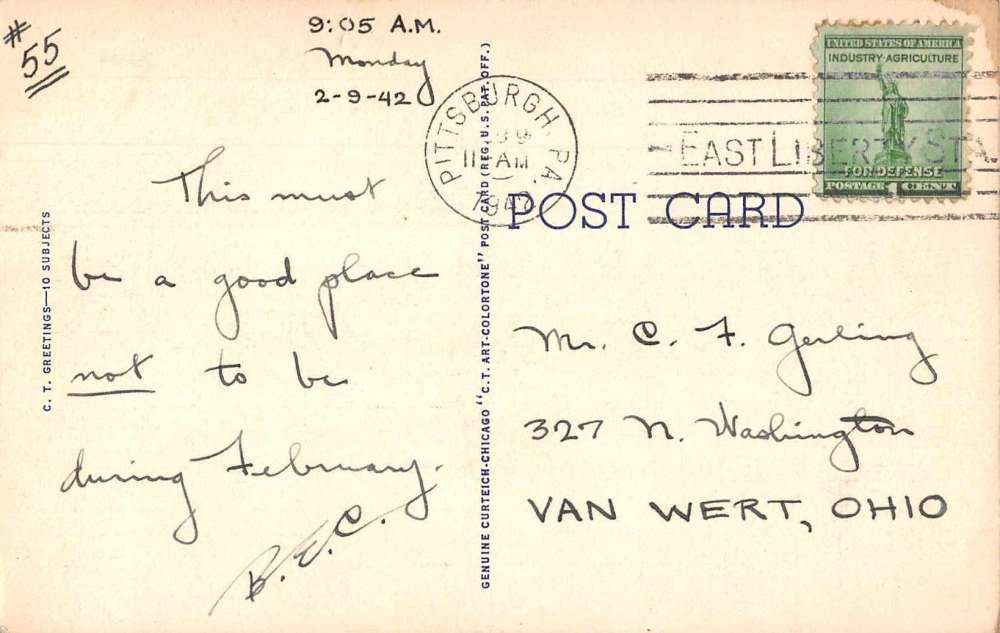 #55
9:05 A.M.
Monday
2-9-42
This must
be a good place
not to be
during February.
B. E. C.
C. T. GREETINGS—10 SUBJECTS
GENUINE CURTEICH-CHICAGO "C. T. ART-COLORTONE" POST CARD (REG. U. S. PAT. OFF.)
PITTSBURGH, PA.
11 AM
1942
EAST LIBERTY STA.
UNITED STATES OF AMERICA
INDUSTRY·AGRICULTURE
FOR DEFENSE
POSTAGE 1 CENT
POST CARD
Mr. C. F. Gerling
327 N. Washington
VAN WERT, OHIO